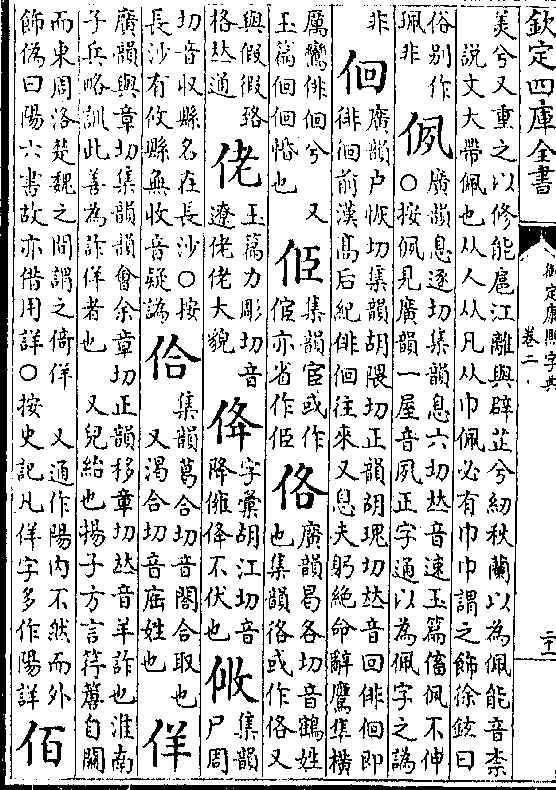 欽定四庫全書
御定康熙字典
卷二
美兮又重之以修能扈江離與辟芷兮紉秋蘭以為佩能音柰
説文大帶佩也从人从凡从巾佩必有巾巾謂之飾徐鉉曰
俗别作
珮非
㑉
廣韻息逐切集韻息六切𠀤音速玉篇㑉不伸
〇按佩見廣韻一屋音夙正字通以為佩字之譌
非
佪
廣韻户恢切集韻胡隈切正韻胡瑰切𠀤音回俳佪即
徘徊前漢髙后紀俳佪往來又息夫躬絶命辭鷹隼横
厲鸞俳佪兮　又
玉篇佪佪惛也
㑌
集韻宦或作
㑌亦省作㑌
佫
廣韻曷各切音鶴姓
也集韻𢓜或作佫又
與假徦䧄
格𠀤通
佬
玉篇力彫切音
遼佬佬大貌
佭
字彚胡江切音
降𠌯佭不伏也
㑋
集韻
尸周
切音収縣名在長沙〇按
長沙有攸縣無收音疑譌
佮
集韻葛合切音閤合取也
又渴合切音㾑姓也
佯
廣韻與章切集韻韻會余章切正韻移章切𠀤音羊詐也淮南
子兵略訓此善為詐佯者也　又兒紿也揚子方言䇨篖自關
而東周洛楚魏之間謂之倚佯　又通作陽内不然而外
飾偽曰陽六書故亦借用詳〇按史記凡佯字多作陽詳
佰